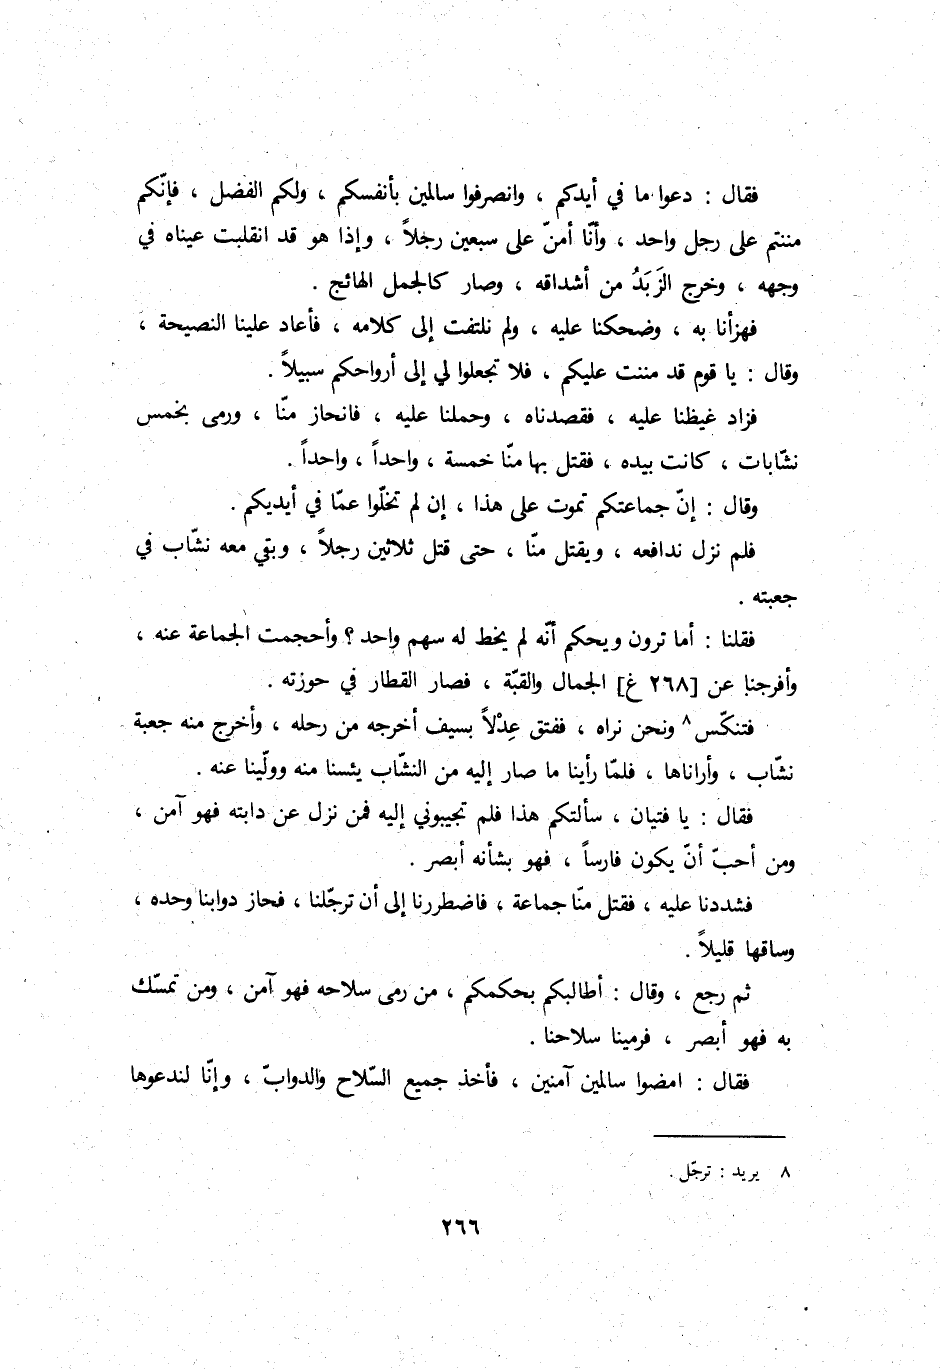 فقال : دعوا ما في أيدكم ، وانصرفوا سالمين بأنفسكم ، ولكم الفضل ، فإنّكم
مننتم على رجل واحد ، وأنّا أمنّ على سبعين رجلاً ، وإذا هو قد انقلبت عيناه في
وجهه ، وخرج الزَبَدُ من أشداقه ، وصار كالجمل الهائج .
فهزأنا به ، وضحكنا عليه ، ولم نلتفت إلى كلامه ، فأعاد علينا النصيحة ،
وقال : يا قوم قد مننت عليكم ، فلا تجعلوا لي إلى أرواحكم سبيلاً .
فزاد غيظنا عليه ، فقصدناه ، وحملنا عليه ، فانحاز منّا ، ورمى بخمس
نشّابات ، كانت بيده ، فقتل بها منّا خمسة ، واحداً ، واحداً .
وقال : إنّ جماعتكم تموت على هذا ، إن لم تخلّوا عمّا في أيديكم .
فلم نزل ندافعه ، ويقتل منّا ، حتى قتل ثلاثين رجلاً ، وبقي معه نشّاب في
جعبته .
فقلنا : أما ترون ويحكم أنّه لم يخط له سهم واحد ؟ وأحجمت الجماعة عنه ،
وأفرجنا عن [٢٦٨ غ] الجمال والقبّة ، فصار القطار في حوزته .
فتنكّس٨ ونحن نراه ، ففتق عِدْلاً بسيف أخرجه من رحله ، وأخرج منه جعبة
نشّاب ، وأراناها ، فلمّا رأينا ما صار إليه من النشّاب يئسنا منه وولّينا عنه .
فقال : يا فتيان ، سألتكم هذا فلم تجيبوني إليه فمن نزل عن دابته فهو آمن ،
ومن أحبّ أنّ يكون فارساً ، فهو بشأنه أبصر .
فشددنا عليه ، فقتل منّا جماعة ، فاضطررنا إلى أن ترجّلنا ، فحاز دوابنا وحده ،
وساقها قليلاً .
ثم رجع ، وقال : أطالبكم بحكمكم ، من رمى سلاحه فهو آمن ، ومن تمسّك
به فهو أبصر ، فرمينا سلاحنا .
فقال : امضوا سالمين آمنين ، فأخذ جميع السّلاح والدوابّ ، وإنّا لندعوها
٨ يريد : ترجّل .
٢٦٦